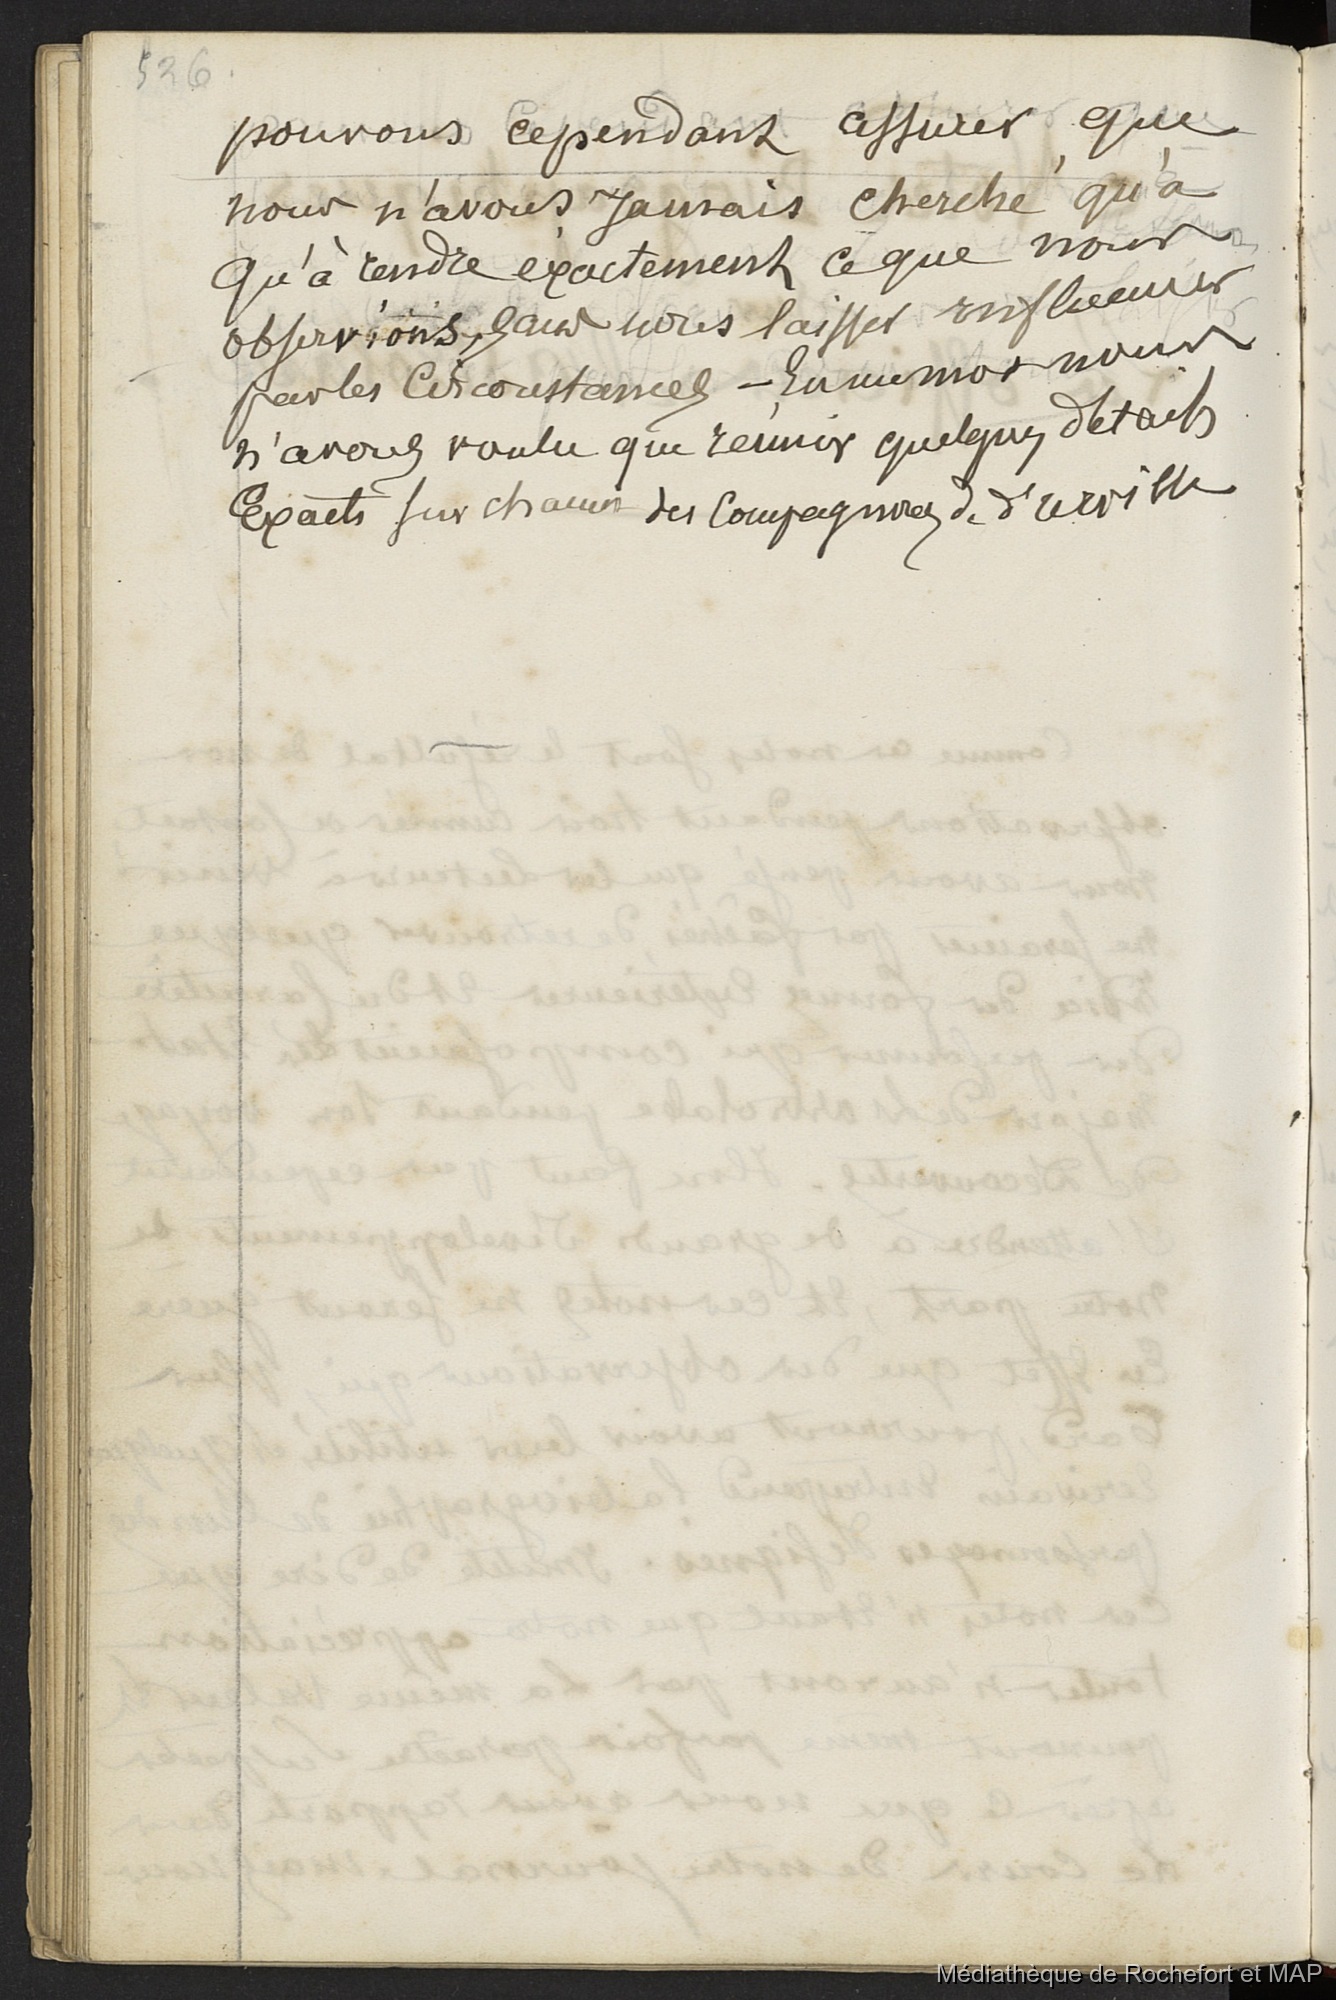 526.
pouvons cependant assurer que
nous n'avons Jamais cherché qu'à
Qu'à rendre éxactement ce que nous
observions, sans nous laisser influencer
par les Circonstances - En un mot nous
n'avons voulu que réunir quelques détails
Exacts sur chacun des Compagnons de d'urville
Médiathèque de Rochefort et MAP